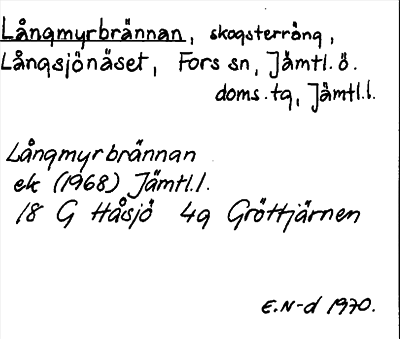 Långmyrbrännan, skogsterräng,
Långsjönäset, Fors sn, Jämtl. ö.
doms. tg, Jämtl.l.
Långmyrbrännan
ek (1968) Jämtl.l.
18 G Håsjö 4g Gröttjärnen
E.N-d 1970.